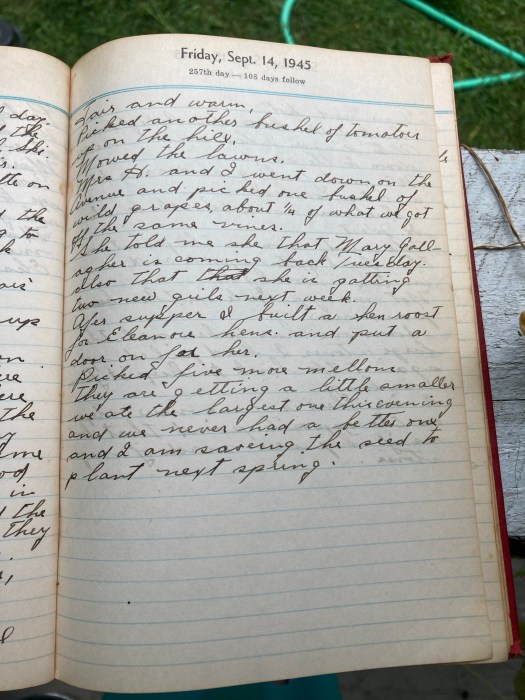 Friday, Sept. 14, 1945
257th day — 108 days follow
Fair and warm,
Picked another bushel of tomatoes
up on the hill.
Mowed the lawns.
Mrs H. and I went down on the
Avenue and picked one bushel of
wild grapes, about ¼ of what we got
off the same vines.
She told me she that Mary Gall
agher is coming back Tuesday.
also that that she is gatting
two new girls next week.
Afer supper I built a hen roost
for Eleanore hens. and put a
door on for her.
Picked five more mellons.
they are getting a little smaller
we ate the largest one this evening
and we never had a better one,
and I am saveing the seed to
plant next spring.
day.
the
on
the
to
up
the
in
the
they